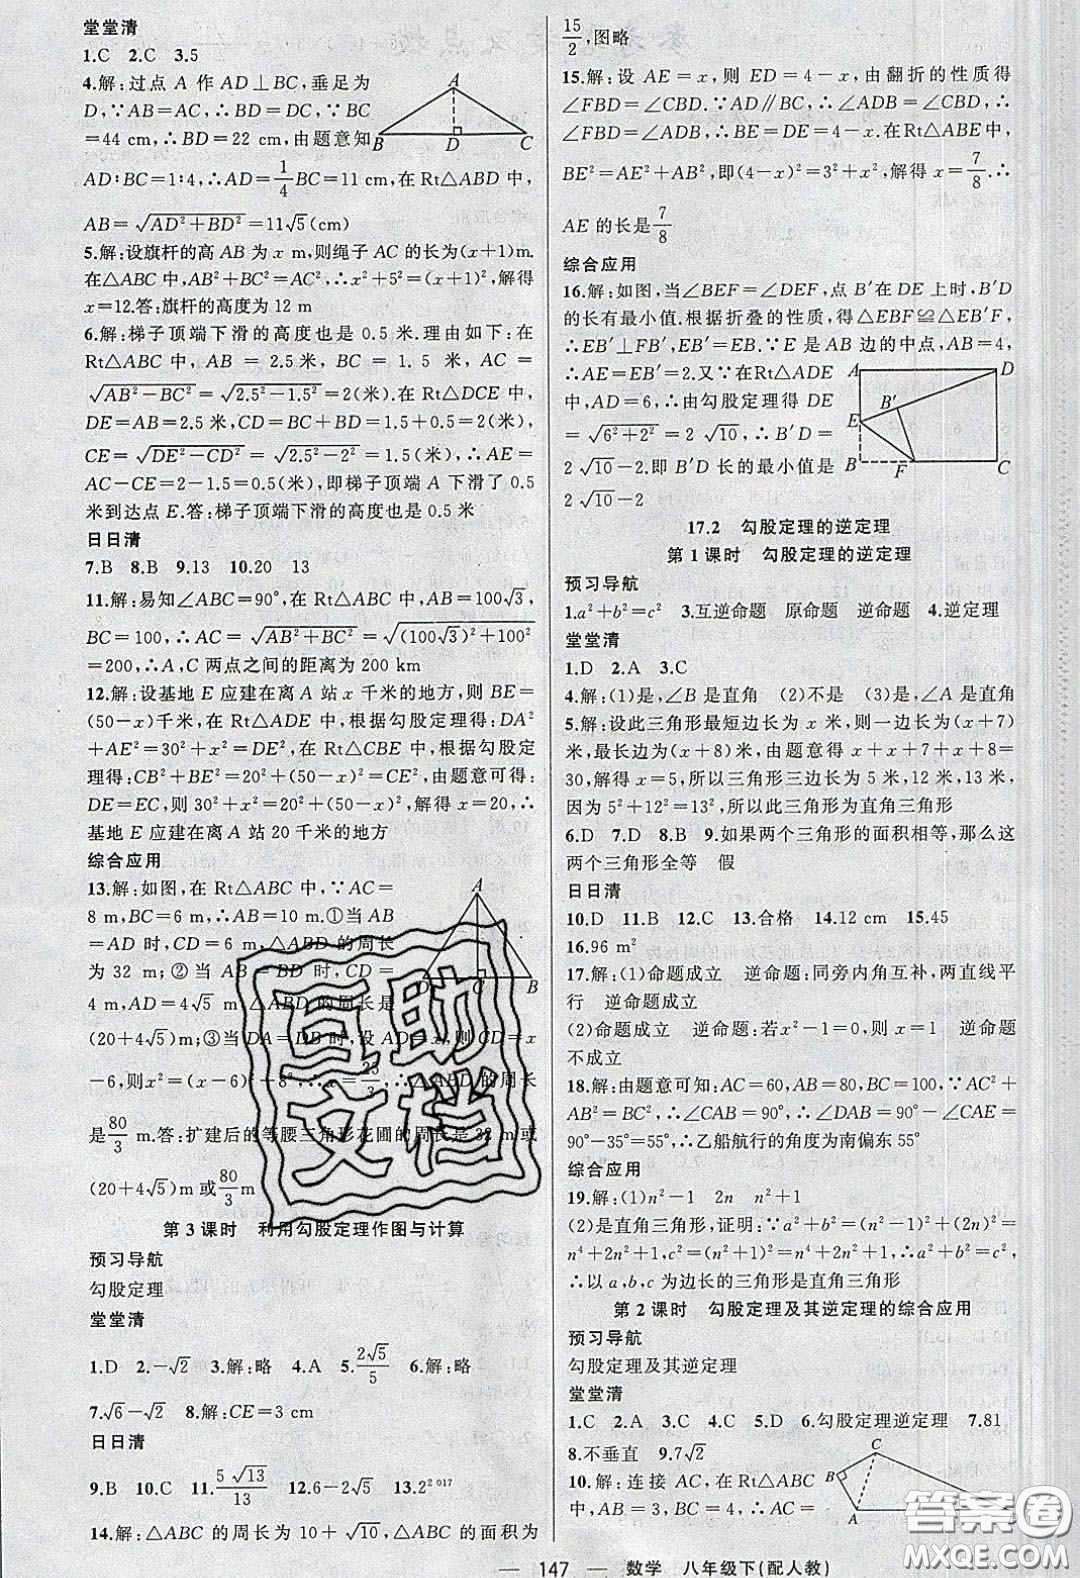 堂堂清
1.C 2.C 3.5
4.解:过点 A 作 AD⊥BC,垂足为
D,∵AB=AC,∴BD=DC,∵BC
=44 cm,∴BD=22 cm,由题意知
AD:BC=1:4,∴AD=1/4BC=11 cm,在 Rt△ABD 中,
AB=√(AD²+BD²)=11√5(cm)
A
B D C
5.解:设旗杆的高 AB 为 x m,则绳子 AC 的长为(x+1)m.
在△ABC 中,AB²+BC²=AC²,∴x²+5²=(x+1)²,解得
x=12.答:旗杆的高度为 12 m
6.解:梯子顶端下滑的高度也是 0.5 米.理由如下:在
Rt△ABC 中,AB = 2.5 米,BC = 1.5 米,AC =
√(AB²-BC²)=√(2.5²-1.5²)=2(米).在 Rt△DCE 中,
DE=AB=2.5 米,CD=BC+BD=1.5+0.5=2(米),
CE=√(DE²-CD²)=√(2.5²-2²)=1.5(米),∴AE=
AC-CE=2-1.5=0.5(米),即梯子顶端 A 下滑了 0.5
米到达点 E.答:梯子顶端下滑的高度也是 0.5 米
日日清
7.B 8.B 9.13 10.20 13
11.解:易知∠ABC=90°,在 Rt△ABC 中,AB=100√3,
BC=100,∴AC=√(AB²+BC²)=√((100√3)²+100²)
=200,∴A,C 两点之间的距离为 200 km
12.解:设基地 E 应建在离 A 站 x 千米的地方,则 BE=
(50-x)千米,在 Rt△ADE 中,根据勾股定理得:DA²
+AE²=30²+x²=DE²,在 Rt△CBE 中,根据勾股定
理得:CB²+BE²=20²+(50-x)²=CE²,由题意可得:
DE=EC,则 30²+x²=20²+(50-x)².解得 x=20,∴
基地 E 应建在离 A 站 20 千米的地方
综合应用
13.解:如图,在 Rt△ABC 中,∵AC=
8 m,BC=6 m,∴AB=10 m.①当 AB
=AD 时,CD=6 m,△ABD 的周长
为 32 m;②当 AB=BD 时,CD=
4 m,AD=4√5 m,△ABD 的周长是
(20+4√5)m;③当 DA=DB 时,设 AD=x,则 CD=x
-6,则 x²=(x-6)²+8²,∴x=25/3,∴△ABD 的周长
是80/3 m.答:扩建后的等腰三角形花圃的周长是 32 m 或
(20+4√5)m 或80/3 m
A
D C B
第 3 课时 利用勾股定理作图与计算
预习导航
勾股定理
堂堂清
1.D 2.-√2 3.解:略 4.A 5.2√5/5 6.解:略
7.√6-√2 8.解:CE=3 cm
日日清
9.B 10.C 11.5√13/13 12.6-2√5 13.2²⁰¹⁷
14.解:△ABC 的周长为 10+√10,△ABC 的面积为
15/2,图略
15.解:设 AE=x,则 ED=4-x,由翻折的性质得
∠FBD=∠CBD.∵AD∥BC,∴∠ADB=∠CBD,∴
∠FBD=∠ADB,∴BE=DE=4-x.在 Rt△ABE 中,
BE²=AE²+AB²,即(4-x)²=3²+x²,解得 x=7/8.∴
AE 的长是7/8
综合应用
16.解:如图,当∠BEF=∠DEF,点 B′在 DE 上时,B′D
的长有最小值.根据折叠的性质,得△EBF≌△EB′F,
∴EB′⊥FB′,EB′=EB.∵E 是 AB 边的中点,AB=4,
∴AE=EB′=2.又∵在Rt△ADE
中,AD=6,由勾股定理得 DE
=√(6²+2²)=2√10,∴B′D=
2√10-2.即 B′D 长的最小值是
2√10-2
A D
B′
E
B F C
17.2 勾股定理的逆定理
第 1 课时 勾股定理的逆定理
预习导航
1.a²+b²=c² 3.互逆命题 原命题 逆命题 4.逆定理
堂堂清
1.D 2.A 3.C
4.解:(1)是,∠B 是直角 (2)不是 (3)是,∠A 是直角
5.解:设此三角形最短边长为 x 米,则一边长为(x+7)
米,最长边为(x+8)米,由题意得 x+x+7+x+8=
30,解得 x=5,所以三角形三边长为 5 米,12 米,13 米,
因为 5²+12²=13²,所以此三角形为直角三角形
6.D 7.D 8.B 9.如果两个三角形的面积相等,那么这
两个三角形全等 假
日日清
10.D 11.B 12.C 13.合格 14.12 cm 15.45
16.96 m²
17.解:(1)命题成立 逆命题:同旁内角互补,两直线平
行 逆命题成立
(2)命题成立 逆命题:若x²-1=0,则 x=1 逆命题
不成立
18.解:由题意可知:AC=60,AB=80,BC=100,∵AC²+
AB²=BC²,∴∠CAB=90°,∴∠DAB=90°-∠CAE=
90°-35°=55°,∴乙船航行的角度为南偏东 55°
综合应用
19.解:(1)n²-1 2n n²+1
(2)是直角三角形,证明:∵a²+b²=(n²-1)²+(2n)²=
n⁴+2n²+1,c²=(n²+1)²=n⁴+2n²+1,∴a²+b²=c²,
∴以 a,b,c 为边长的三角形是直角三角形
第 2 课时 勾股定理及其逆定理的综合应用
预习导航
勾股定理及其逆定理
堂堂清
1.C 2.A 3.C 4.C 5.D 6.勾股定理逆定理 7.81
8.不垂直 9.7√2
10.解:连接 AC,在 Rt△ABC
中,AB=3,BC=4,∴AC=
C
B
A
— 147 — 数学 八年级下(配人教)
互助
文档
答案圈
MXQE.COM